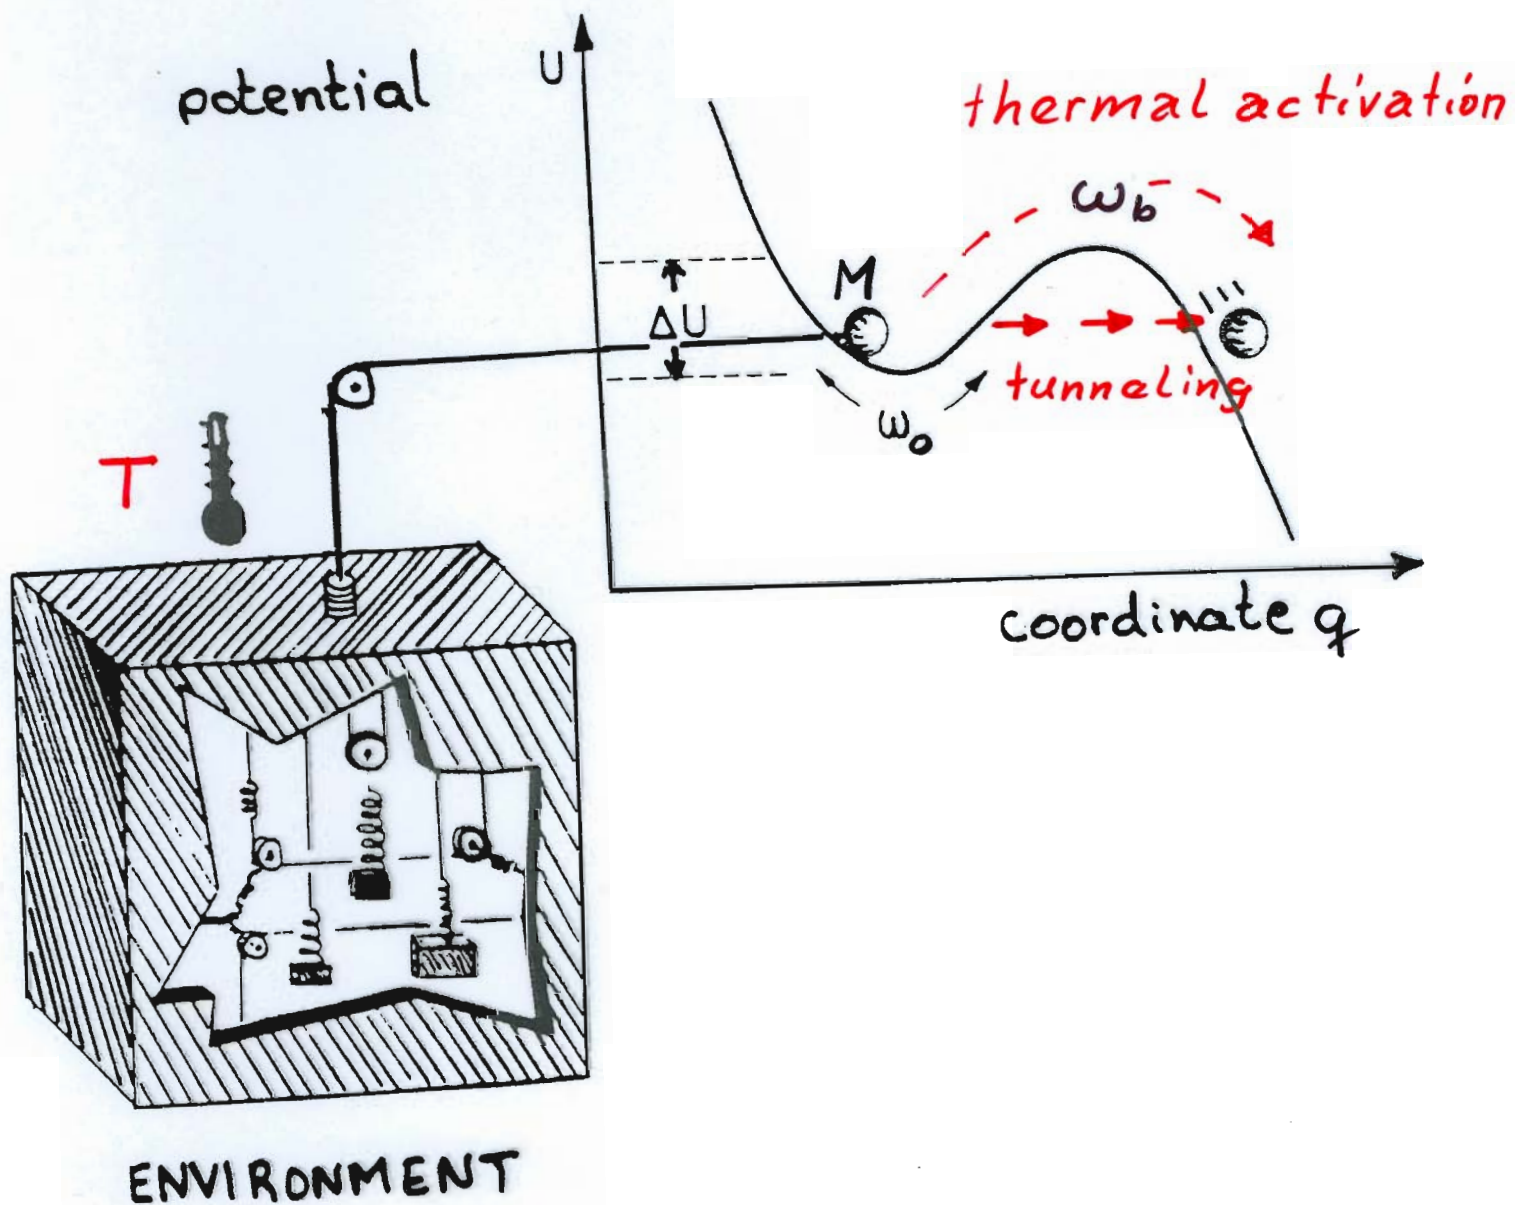 potential
U
thermal activation
ω_b
M
ΔU
tunneling
ω_o
T
coordinate q
ENVIRONMENT